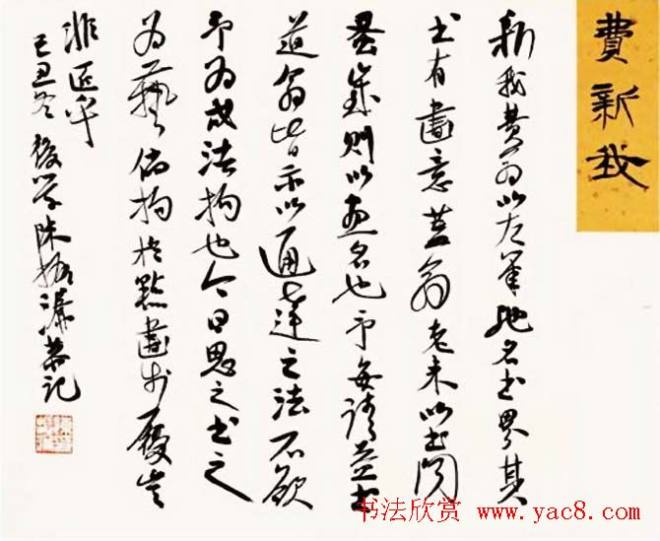 費新我
新我費翁以左筆馳名书界其
书有畫意蓋翁老来以书闻
蚤歲則以画名也予每請益书
道翁皆示以通達之法不欲
予為成法拘也今日思之书之
為藝倘拘於點畫步履豈
非匠乎
己丑冬後學陳振濂恭記
书法欣赏 www.yac8.com